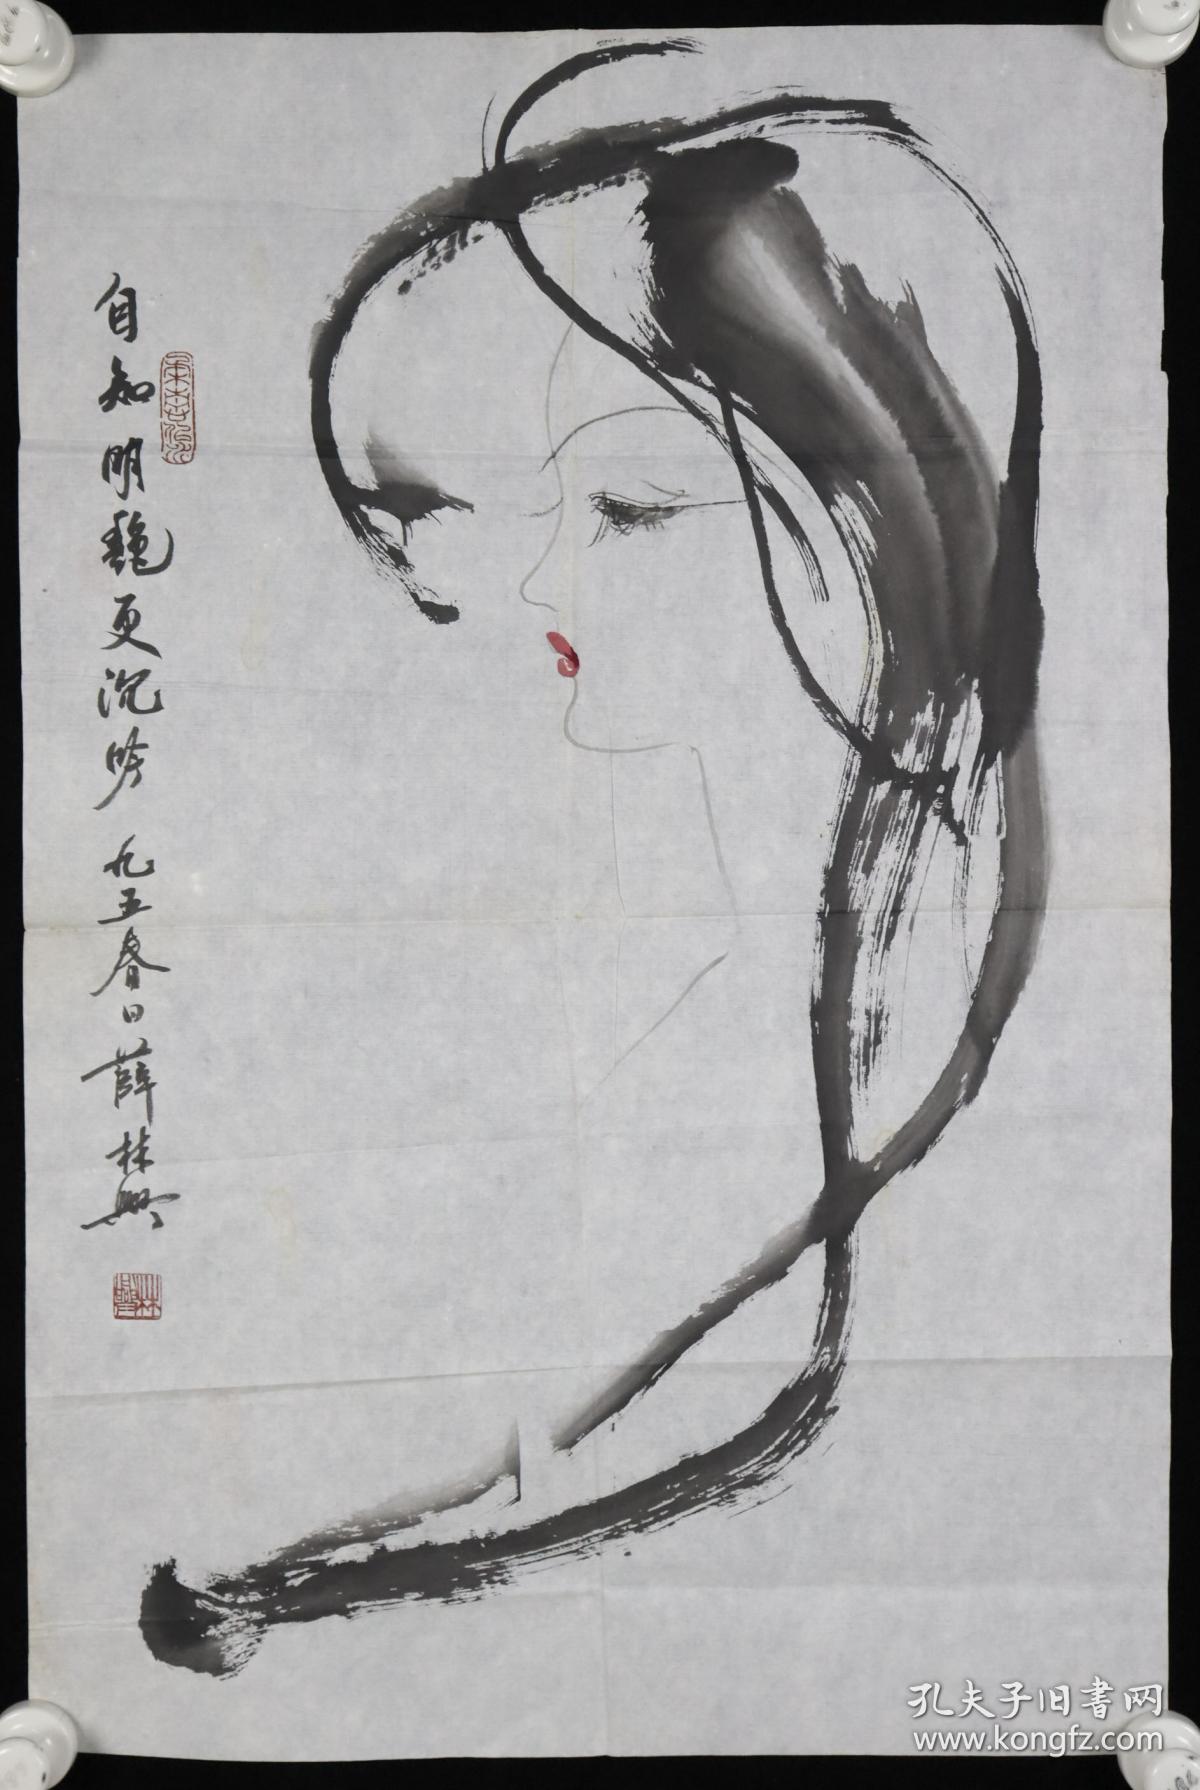 自知明艳更沉吟 九五春日 薛林興
林興
孔夫子旧書网
www.kongfz.com